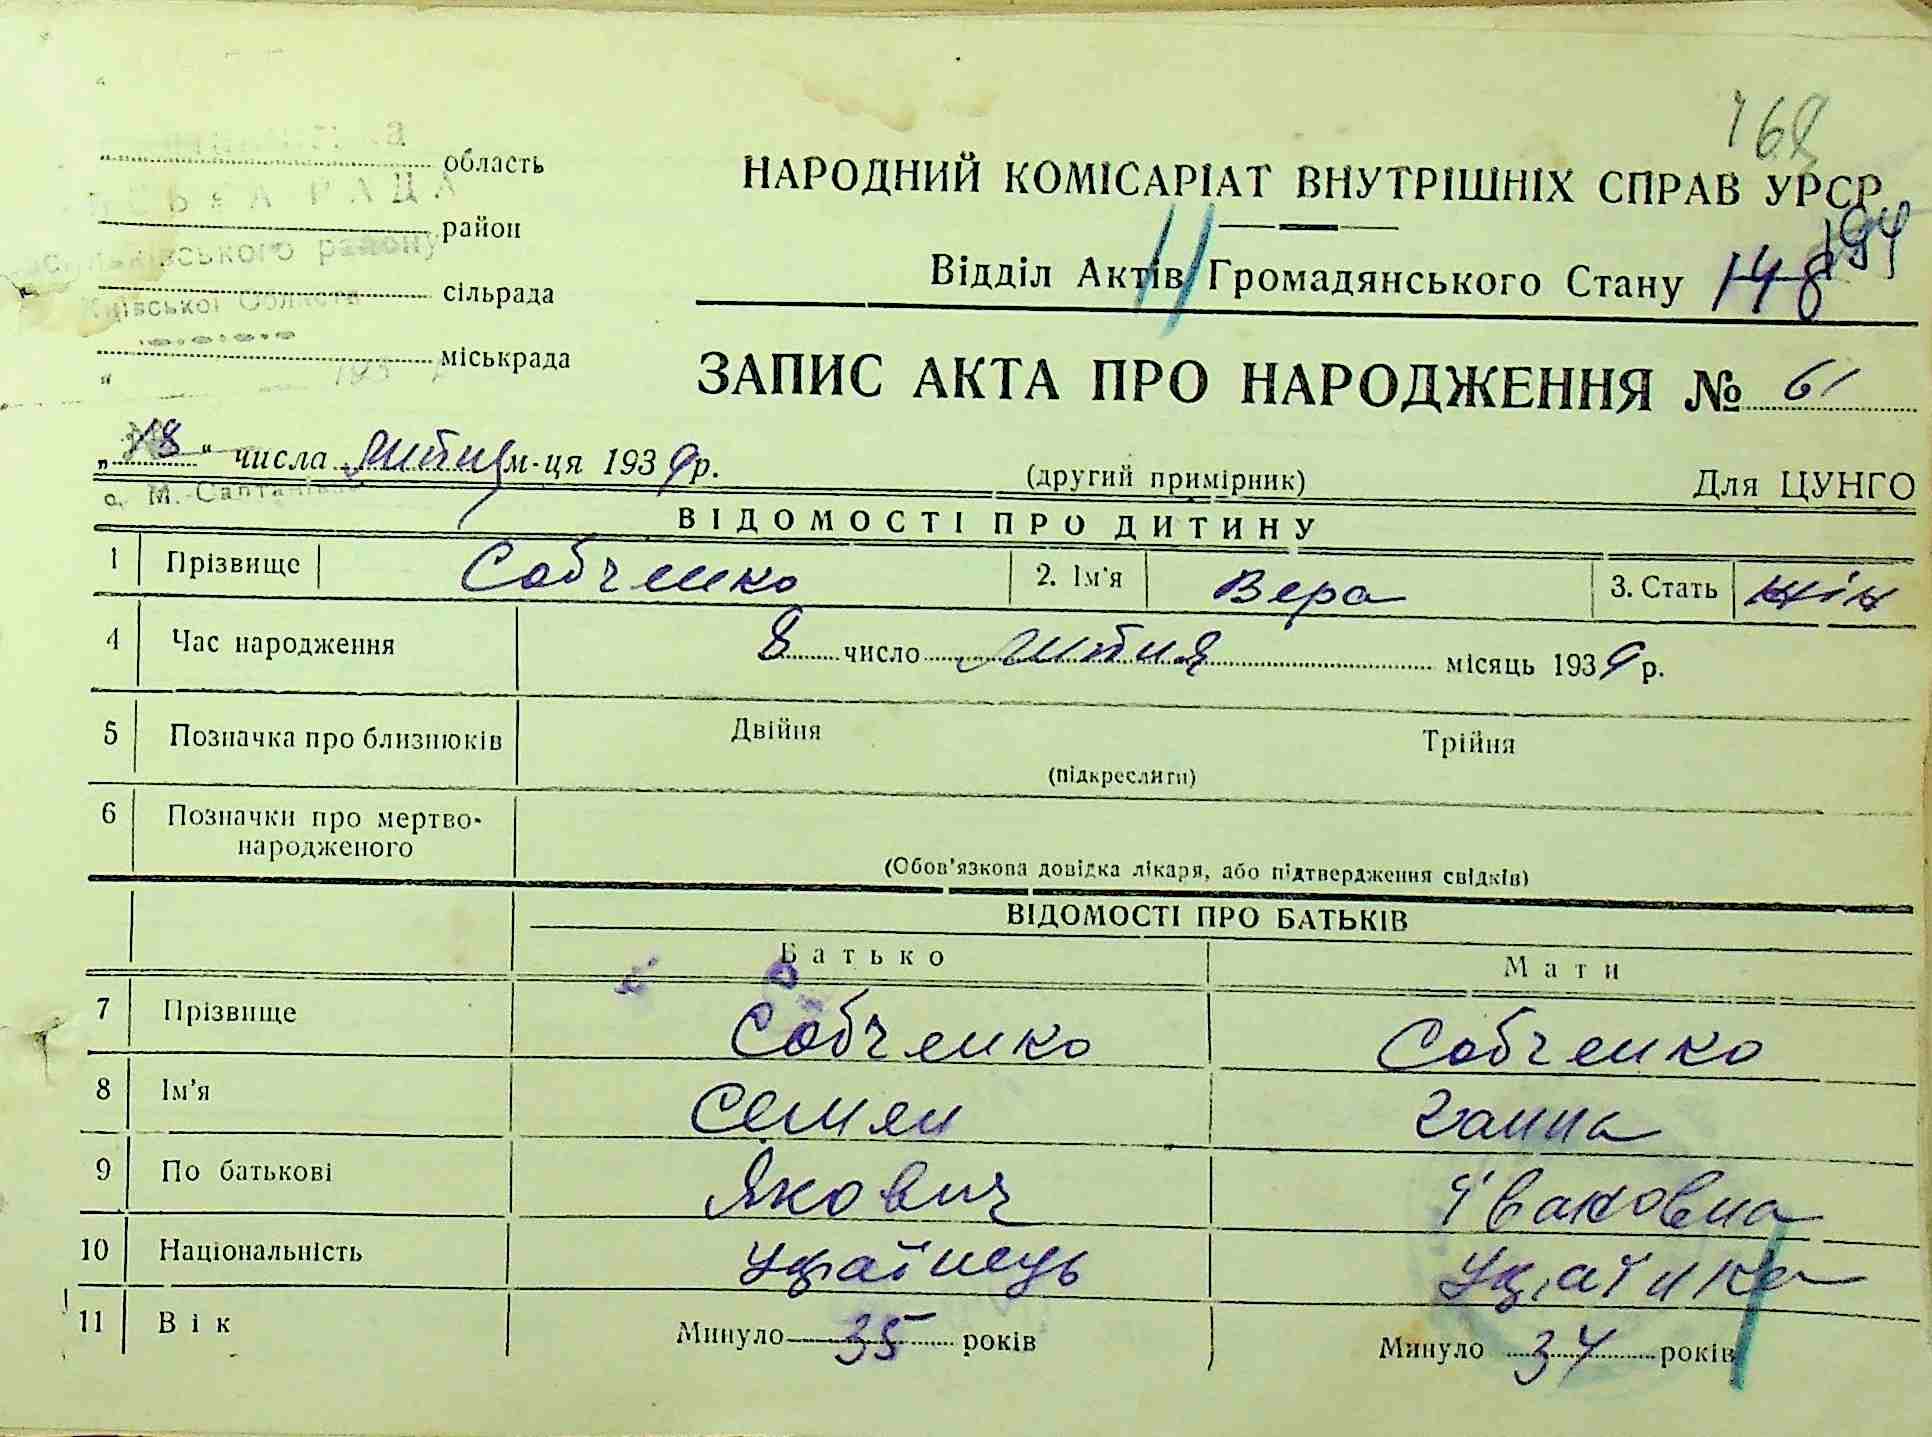 168
область
НАРОДНИЙ КОМІСАРІАТ ВНУТРІШНІХ СПРАВ УРСР
РАДА
район
району
Відділ Актів Громадянського Стану 148 194
сільрада
Київської Області
міськрада
193
ЗАПИС АКТА ПРО НАРОДЖЕННЯ № 61
„18“ числа липня м-ця 1939 р.
(другий примірник)
Для ЦУНГО
с. М.-Салтанівка
ВІДОМОСТІ ПРО ДИТИНУ
1 Прізвище Собченко 2. Ім'я Вера 3. Стать жін
4 Час народження 8 число липня місяць 1939 р.
5 Позначка про близнюків Двійня Трійня
(підкреслити)
6 Позначки про мертво-
народженого
(Обов'язкова довідка лікаря, або підтвердження свідків)
ВІДОМОСТІ ПРО БАТЬКІВ
Батько Мати
7 Прізвище Собченко Собченко
8 Ім'я Семен Ганна
9 По батькові Якович Івановна
10 Національність Українець Українка
11 Вік Минуло 35 років Минуло 34 років